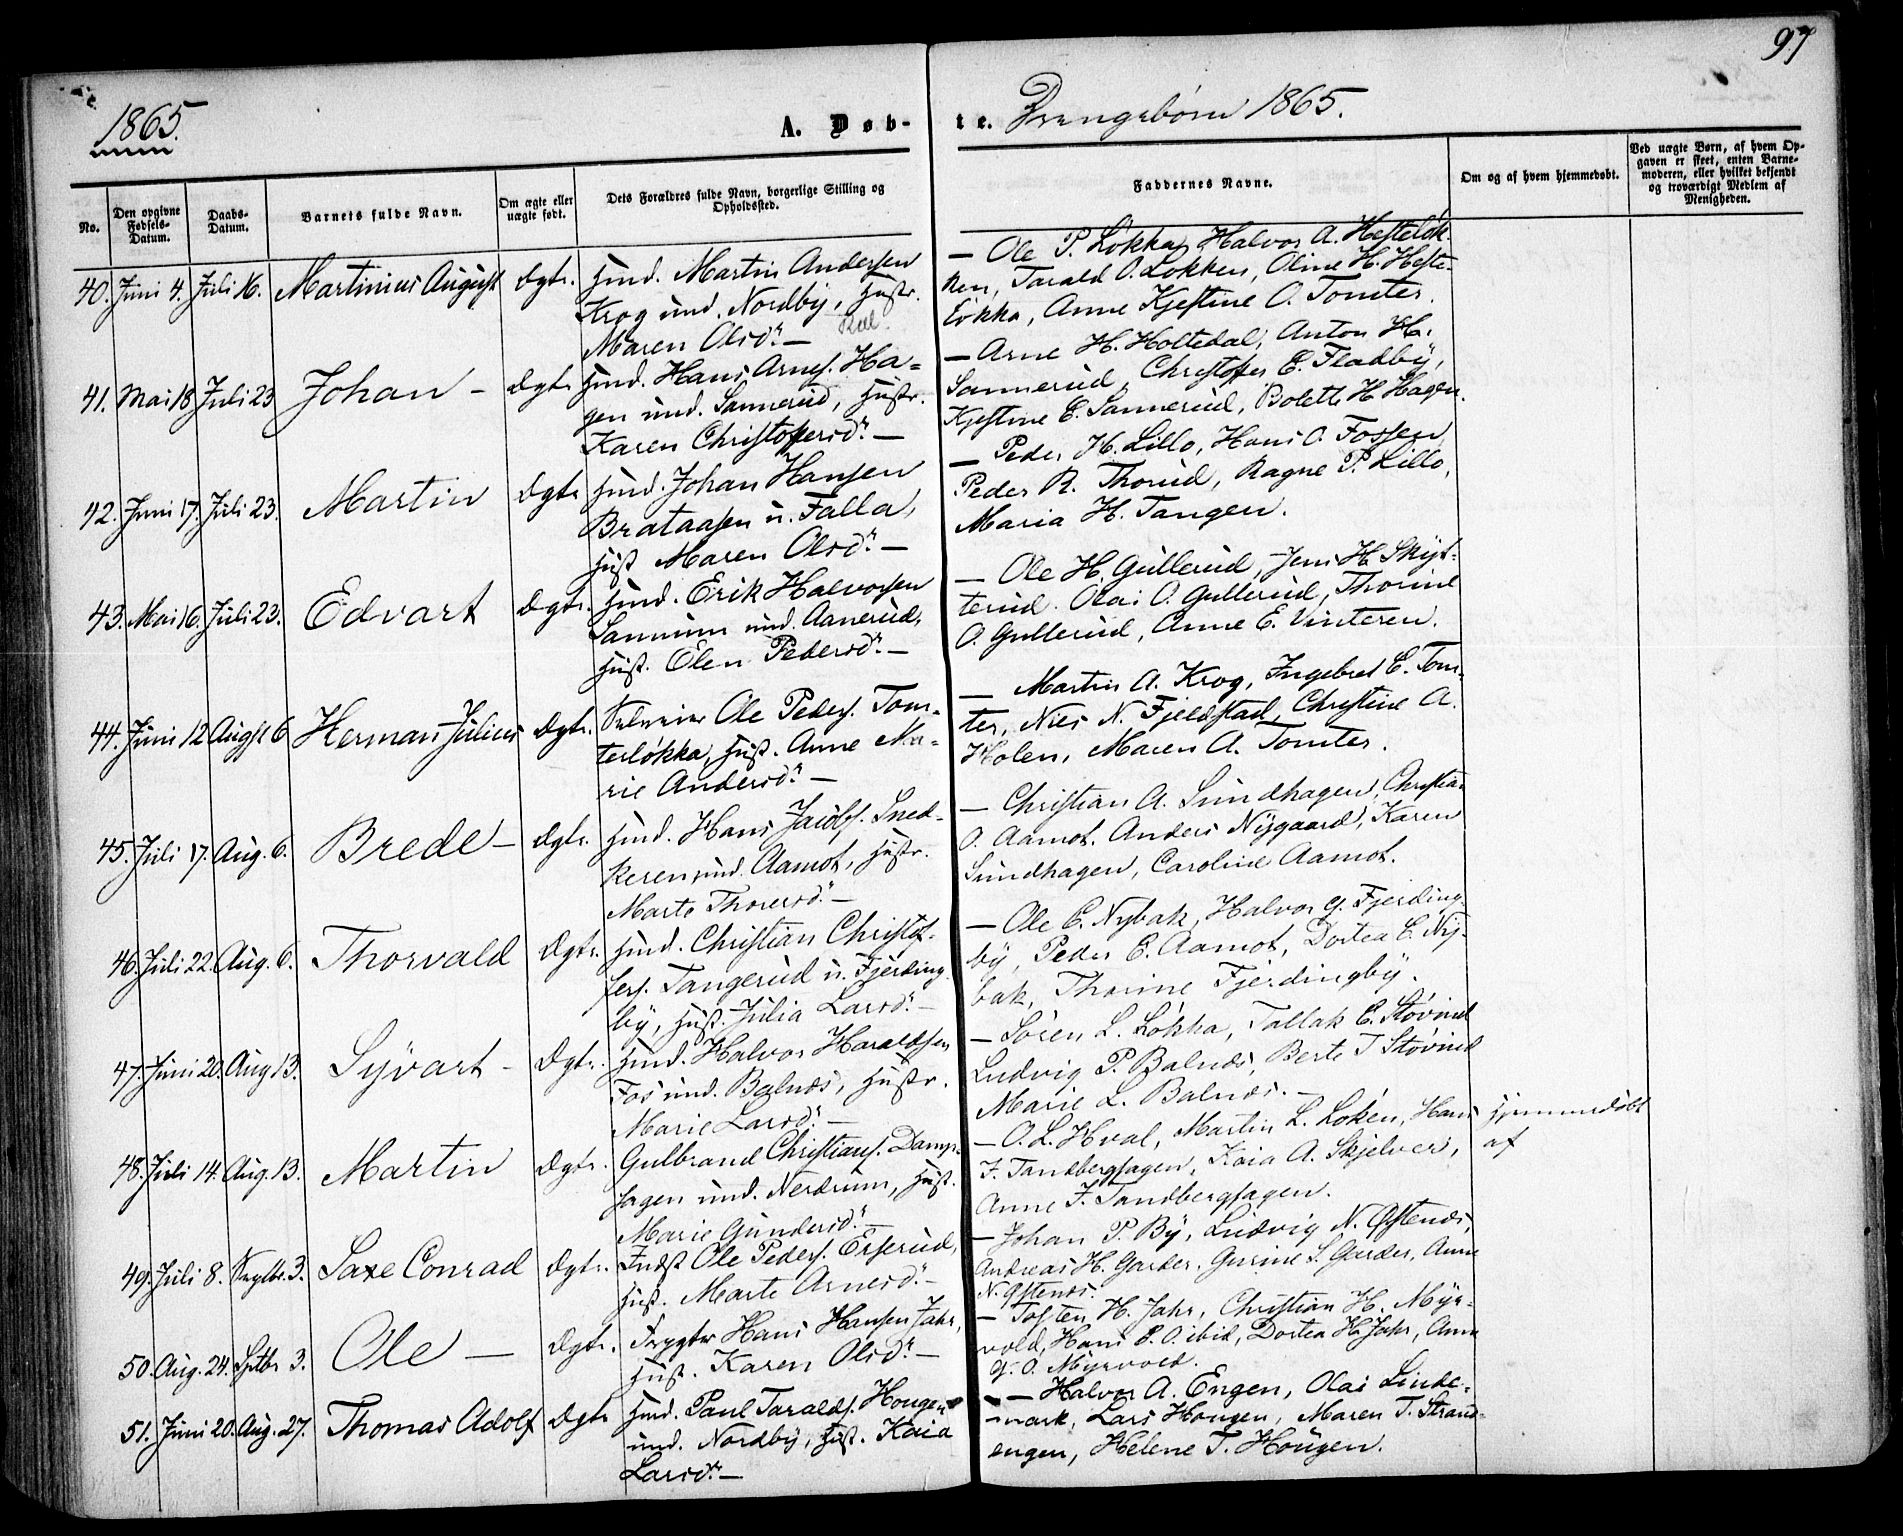 97
1865.
A. Døb-
te. Drengebørn 1865.
No.
Den opgivne Fødsels-Datum.
Daabs-Datum.
Barnets fulde Navn.
Om ægte eller uægte født.
Dets Forældres fulde Navn, borgerlige Stilling og Opholdssted.
Faddernes Navne.
Om og af hvem hjemmedøbt.
Ved uægte Børn, af hvem Opgaven er skeet, enten Barnemoderen, eller hvilket bekjendt og troværdigt Medlem af Menigheden.
40. Juni 4. Juli 16. Martinius August Ægte. Husmd. Martin Andersen
Krog und. Nordby, Hustr.
Maren Olsdr. —
— Ole P. Løkka, Halvor A. Hesteløk-
ken, Tarald O. Løkken, Oline H. Heste-
løkka, Anne Kjestine O. Tomter.
41. Mai 18 Juli 23 Johan — Ægte Husmd. Hans Arnes. Ha-
gen und. Sannerud, Hustr.
Karen Christoffersdr. —
— Arne H. Holtedal, Anton H.
Sannerud, Christoffer E. Fladby,
Kjestine E. Sannerud, Bolette H. Hagen.
42. Juni 17. Juli 23. Martin Ægte Husmd. Johan Hansen
Brataasen u. Falla,
Hust. Maren Olsdr. —
— Peder H. Lillo, Hans O. Fossen,
Peder R. Thorud, Ragne P. Lillo,
Maria H. Tangen.
43. Mai 16. Juli 23. Edvart Ægte. Husmd. Erik Halvorsen
Sannum und. Aanerud,
Hust. Elen Pedersdr. —
— Ole H. Gullerud, Jens H. Skyt-
terud. Olai O. Gullerud, Thorine
O. Gullerud, Anne E. Vinteren.
44. Juni 12 August 6 Herman Julius Ægte. Selveier Ole Peders. Tom-
terløkka, Hust. Anne Ma-
rie Andersdr. —
— Martin A. Krog, Ingebret E. Tom-
ter, Niels N. Fjeldstad, Christine A.
Holen, Maren A. Tomter.
45. Juli 17. Aug. 6. Brede — Ægte. Husmd. Hans Jacobs. Sned-
keren und. Aamot, Hustr.
Marte Thoresdr. —
— Christian A. Sundhagen, Christian
O. Aamot. Anders Nygaard, Karen
Sundhagen, Caroline Aamot.
46. Juli 22. Aug. 6. Thorvald Ægte. Husmd. Christian Christof-
fers. Tangerud u. Fjerding-
by, Hust. Julia Larsdr. —
— Ole E. Nybak, Halvor G. Fjerding-
by, Peder E. Aamot, Dortea E. Ny-
bak, Thorine Fjerdingby.
47. Juni 20. Aug 13. Syvart — Ægte. Husmd. Halvor Haraldsen
Fos und. Balnæs, Hustr.
Marie Larsdr. —
— Søren L. Løkka, Tallak E. Støvind
Ludvig P. Balnæs, Berte T Støvind
Marie L. Balnæs. —
48. Juli 14. Aug. 13. Martin Ægte. Gulbrand Christians. Damp-
sagen und. Nerdrum, Hust.
Marie Gundersdr. —
— O. L. Hval, Martin L. Løken, Hans
F. Tandbergsagen, Kaia A. Skjelver,
Anne F. Tandbergsagen.
Hjemmedøbt
af
49. Juli 8. Septbr. 3. Saxe Conrad Ægte. Indst Ole Peders. Erserud,
Hust. Marte Arnesdr. —
— Johan P. By, Ludvig N. Østenæs,
Andreas H. Garder. Gurine L. Garder, Anne
N. Østenæs.
50. Aug. 24. Septbr 3. Ole — Ægte. Forpagter Hans Hansen Jahr,
Hust. Karen Olsdr. —
— Tosten H. Jahr, Christian H. Myr-
vold, Hans E. O. ibid, Dortea H. Jahr, Anne
G. O. Myrvold.
51. Juni 20. Aug. 27. Thomas Adolf Ægte Husmd. Paul Taralds. Hougen
und. Nordby, Hust. Kaia
Larsdr. —
— Halvor A. Engen, Olai Linde-
mark, Lars Hougen, Maren T. Strand-
engen, Helene T. Hougen.